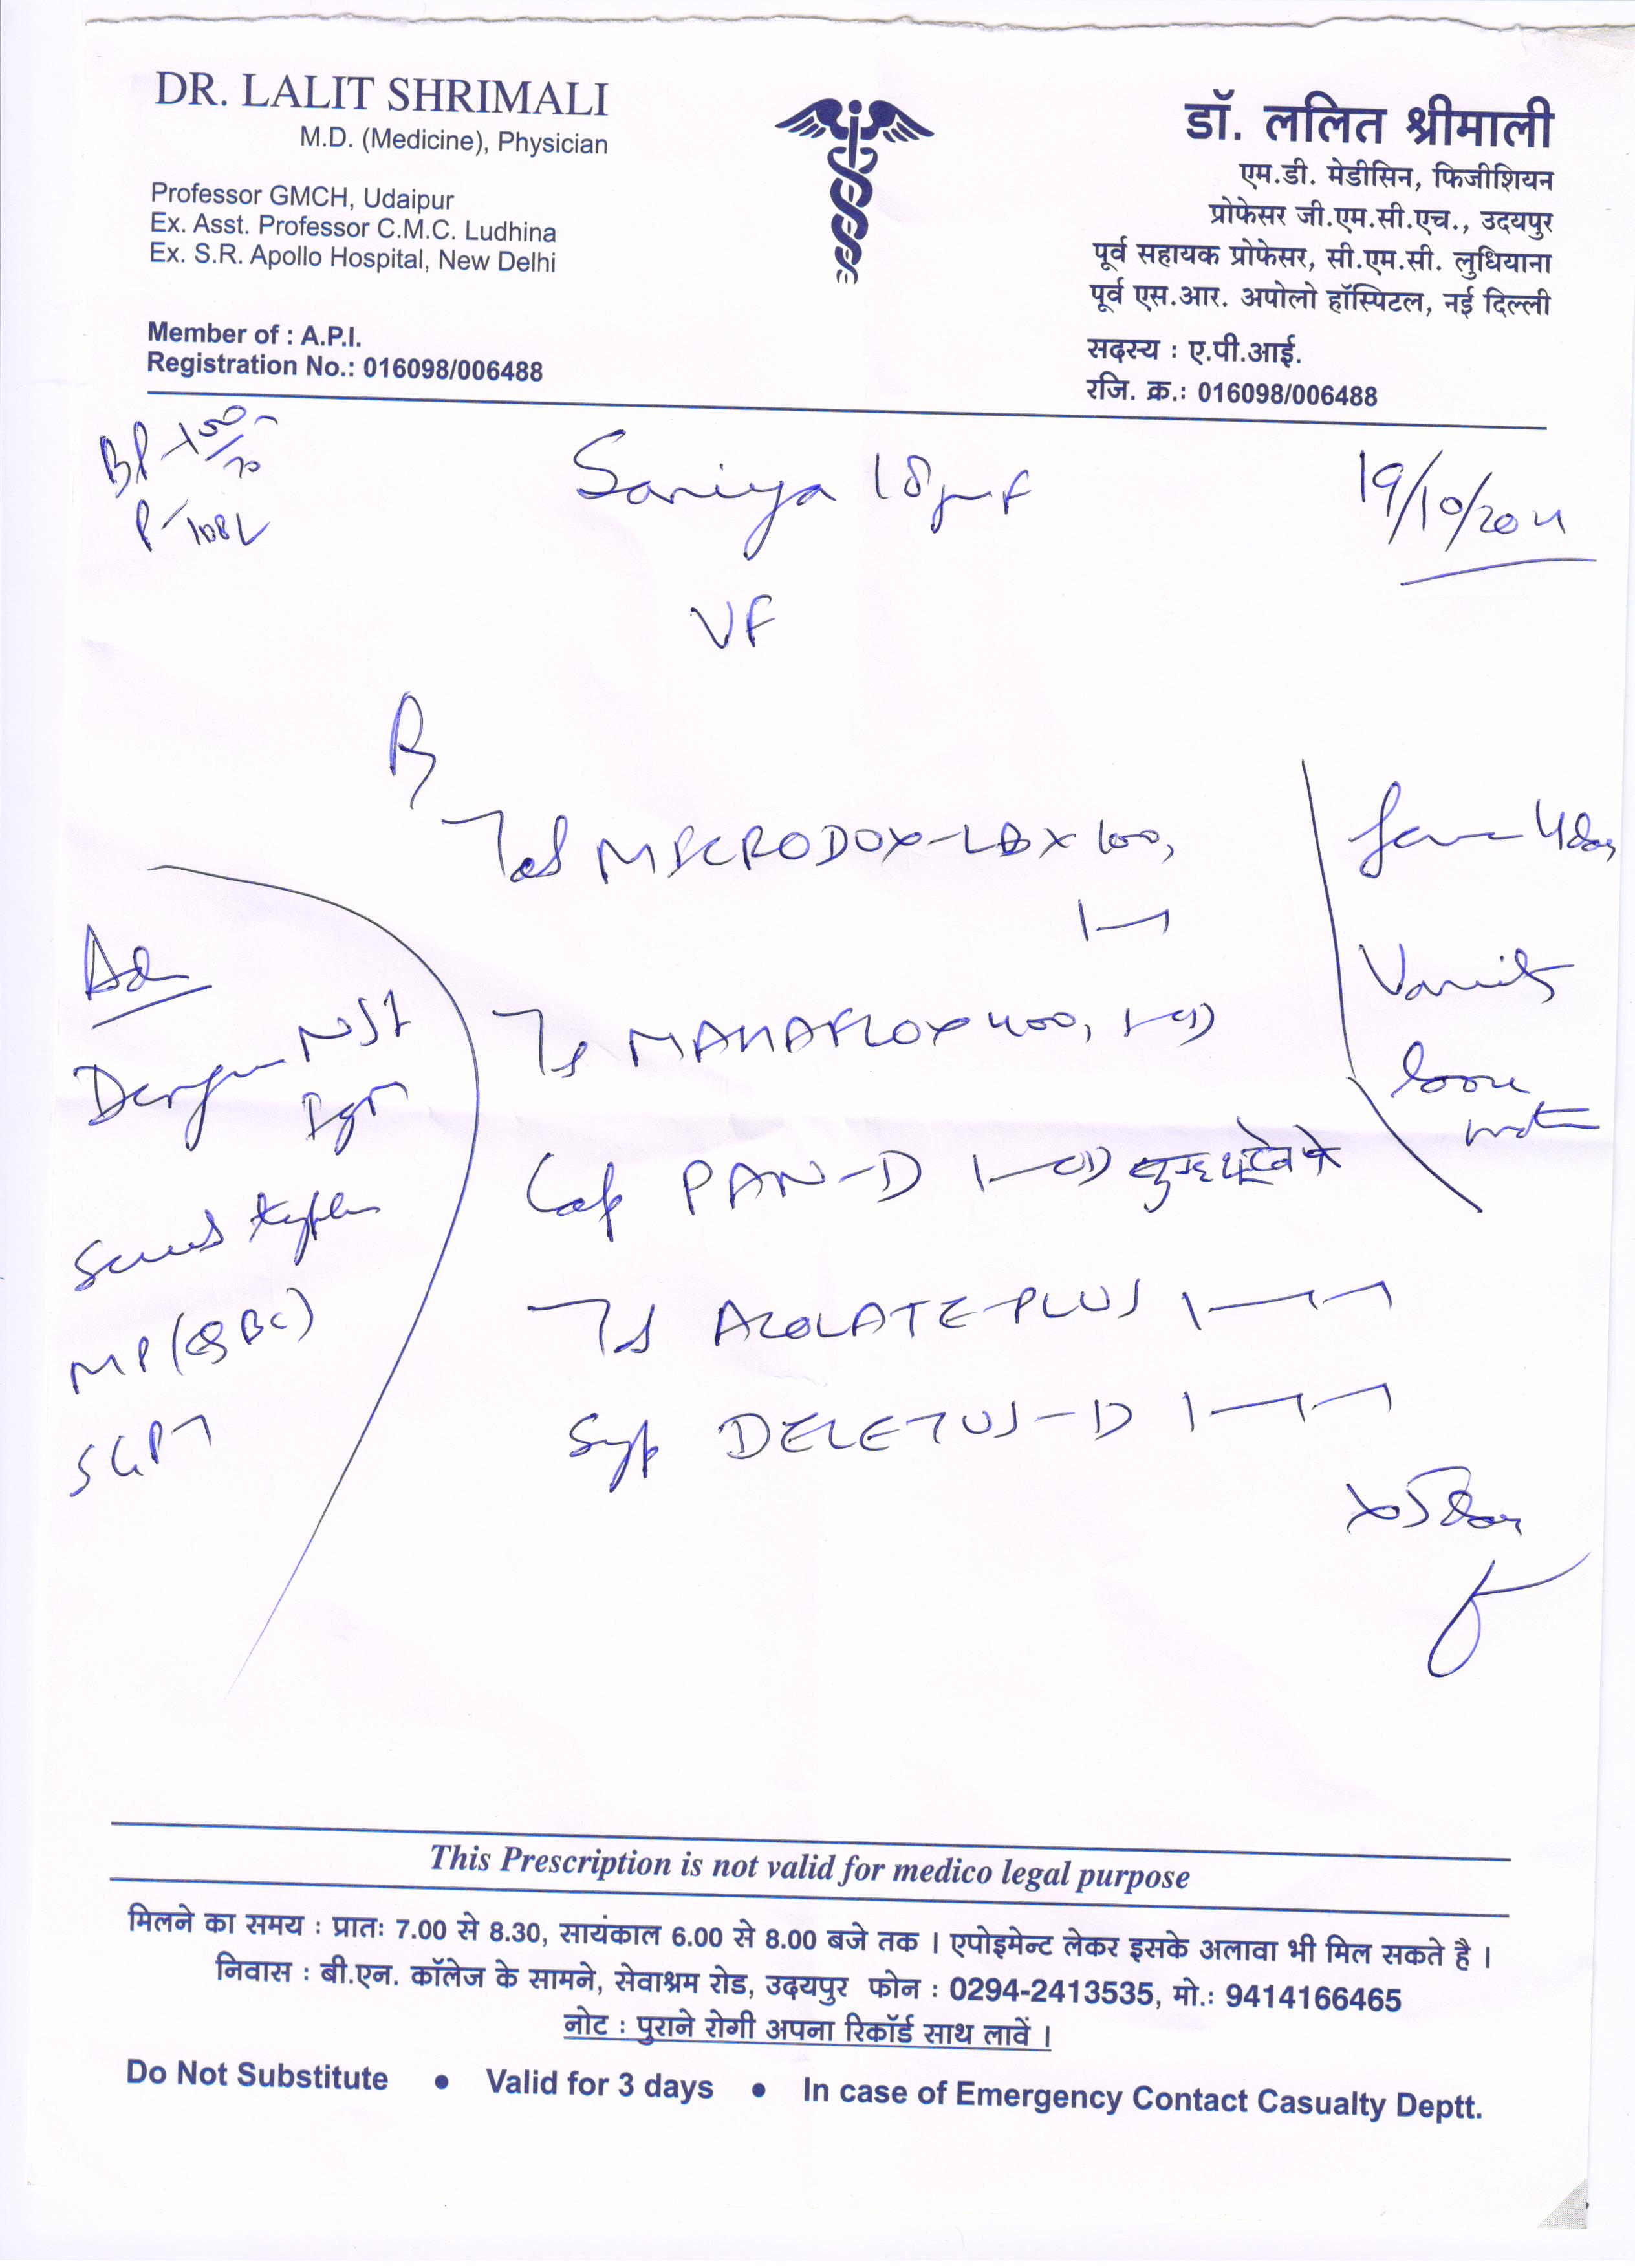 DR. LALIT SHRIMALI
M.D. (Medicine), Physician
Professor GMCH, Udaipur
Ex. Asst. Professor C.M.C. Ludhina
Ex. S.R. Apollo Hospital, New Delhi
Member of : A.P.I.
Registration No.: 016098/006488
डॉ. ललित श्रीमाली
एम.डी. मेडीसिन, फिजीशियन
प्रोफेसर जी.एम.सी.एच., उदयपुर
पूर्व सहायक प्रोफेसर, सी.एम.सी. लुधियाना
पूर्व एस.आर. अपोलो हॉस्पिटल, नई दिल्ली
सदस्य : ए.पी.आई.
रजि. क्र.: 016098/006488
BP
Saniya 18 F
19/10/
VF
MICRODOX-LBX 100,
MAHAFLOX 400,
Cap PAN-D
AZOLATE-PLUS
Syp DELETUS-D
Ad
Dengue NS1
Serum typhi
MP (QBC)
SGPT
Fever 4 days
Vomits
loose
x 5 days
This Prescription is not valid for medico legal purpose
मिलने का समय : प्रातः 7.00 से 8.30, सायंकाल 6.00 से 8.00 बजे तक । एपोइमेन्ट लेकर इसके अलावा भी मिल सकते है ।
निवास : बी.एन. कॉलेज के सामने, सेवाश्रम रोड, उदयपुर फोन : 0294-2413535, मो.: 9414166465
नोट : पुराने रोगी अपना रिकॉर्ड साथ लावें ।
Do Not Substitute • Valid for 3 days • In case of Emergency Contact Casualty Deptt.